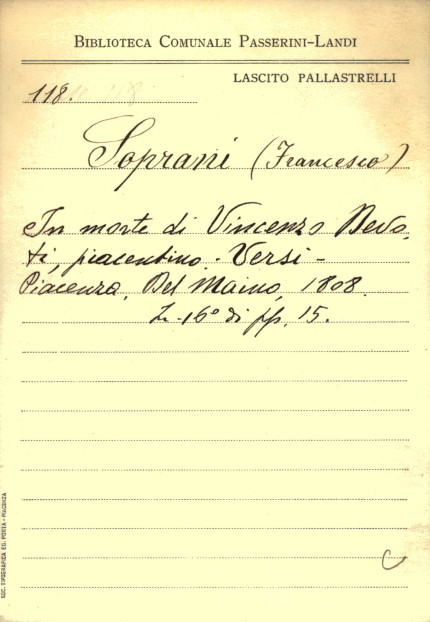 BIBLIOTECA COMUNALE PASSERINI-LANDI
LASCITO PALLASTRELLI
118.
Soprani (Francesco)
In morte di Vincenzo Bevo,
ti, piacentino. - Versi -
Piacenza, Del Maino, 1808.
In-16° di pp. 15.
C
SOC. TIPOGRAFICA ED. PORTA - PIACENZA